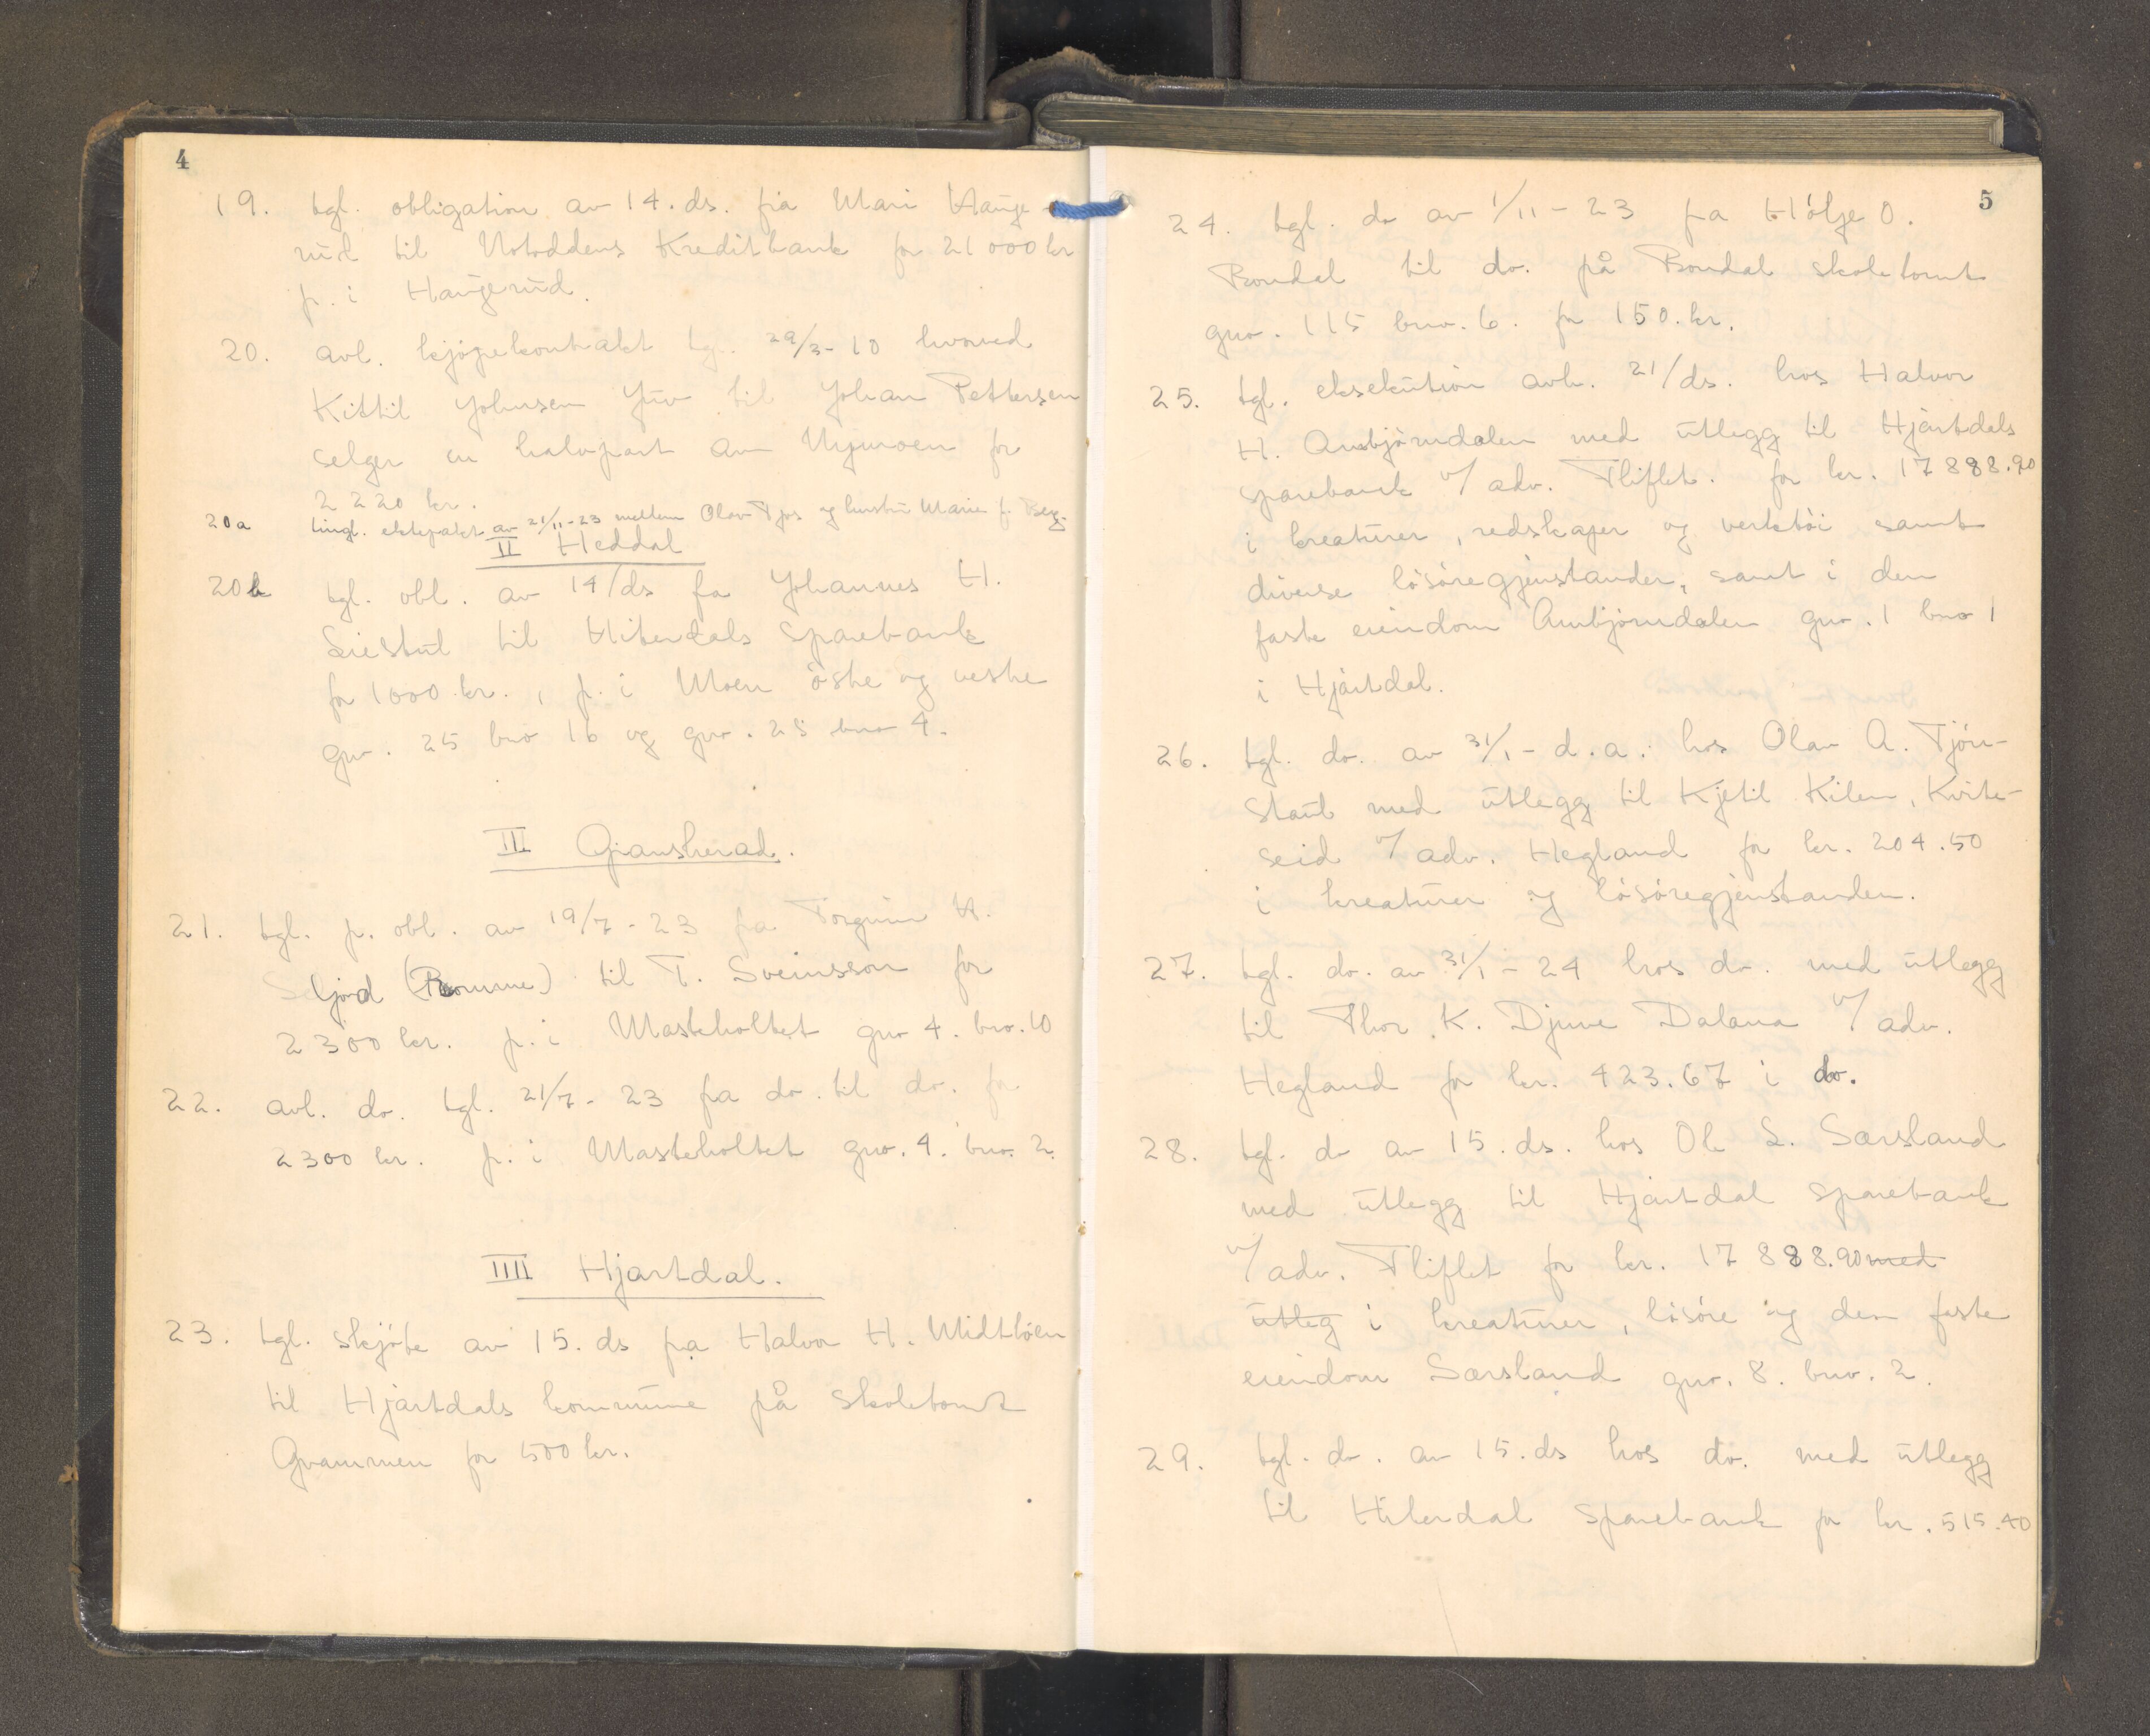 4
19. tgl. obligation av 14. ds. fra Mari Hauge-
rud til Notoddens Kreditbank for 21 000 kr
p. i Haugerud.
20. avl. kjøpekontrakt tgl. 29/3-10 hvorved
Kittil Johnsen Juv til Johan Pettersen
selger en halvpart av Nymoen for
2 220 kr.
20a tingl. ektepakt av 21/11-23 mellem Olav Tjos og hustru Marie f. Berg.
II Heddal
20b tgl. obl. av 14/ds fra Johannes H.
Liestul til Hiterdals Sparebank
for 1000 kr., p. i Moen østre og vestre
gnr. 25 bnr 16 og gnr. 25 bnr 4.
III Gransherad.
21. tgl. p. obl. av 19/7-23 fra Torgrim H.
Seljord (Romme) til T. Sveinsson for
2300 kr. p. i Masteholtet gnr 4. bnr. 10
22. avl. do. tgl. 21/7-23 fra do. til do. for
2300 kr. p. i Masteholtet gnr. 4. bnr. 2.
IIII Hjartdal.
23. tgl. skjøte av 15. ds fra Halvor H. Midtbøen
til Hjartdals kommune på skoletomt
Gvammen for 500 kr.
5
24. tgl. do av 1/11-23 fra Hølje O.
Bondal til do. på Bondal skoletomt
gnr. 115 bnr. 6. for 150. kr.
25. tgl. eksekution avh. 21/ds. hos Halvor
H. Ambjørndalen med utlegg til Hjartdals
sparebank v/ adv. Fliflet. for kr. 17 888.90
i kreaturer, redskaper og verktøi samt
diverse løsøregjenstander, samt i den
faste eiendom Ambjørndalen gnr. 1 bnr 1
i Hjartdal.
26. tgl. do. av 31/1- d.a. hos Olav A. Tjøn-
staul med utlegg til Kjetil Kilen, Kvite-
seid v/ adv. Hegland for kr. 204.50
i kreaturer og løsøregjenstander.
27. tgl. do. av 31/1-24 hos do. med utlegg
til Thor K. Djuve Dalana v/ adv.
Hegland for kr. 423.67 i do.
28. tgl. do av 15. ds. hos Ole S. Sørsland
med utlegg til Hjartdal sparebank
v/ adv. Fliflet for kr. 17 888.90 med
utleg i kreaturer, løsøre og den faste
eiendom Sørsland gnr. 8. bnr. 2.
29. tgl. do. av 15. ds hos do. med utlegg
til Hiterdal Sparebank for kr. 515.40